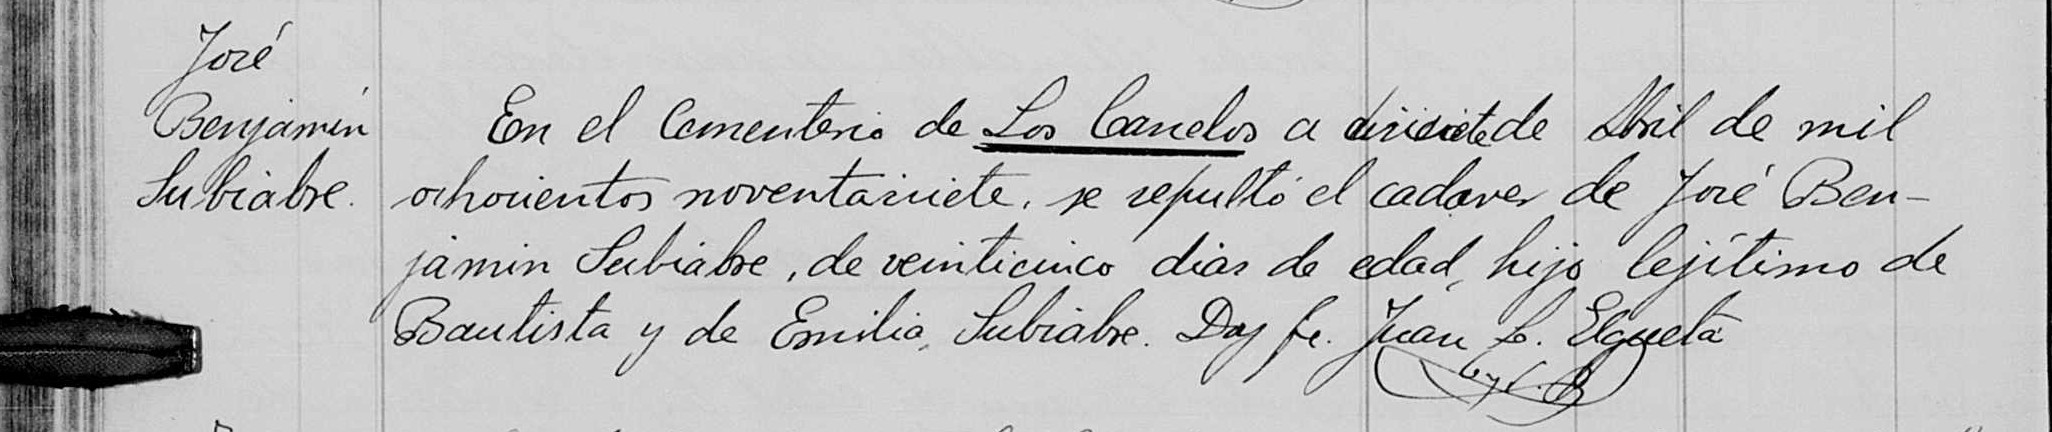 José
Benjamin
Subiabre.
En el Cementerio de Los Canelos a diecisiete de Abril de mil
ochocientos noventaisiete, se sepultó el cadaver de José Ben-
jamin Subiabre, de veinticinco dias de edad, hijo lejítimo de
Bautista y de Emilia Subiabre. Doy fe. Juan L. Elgueta